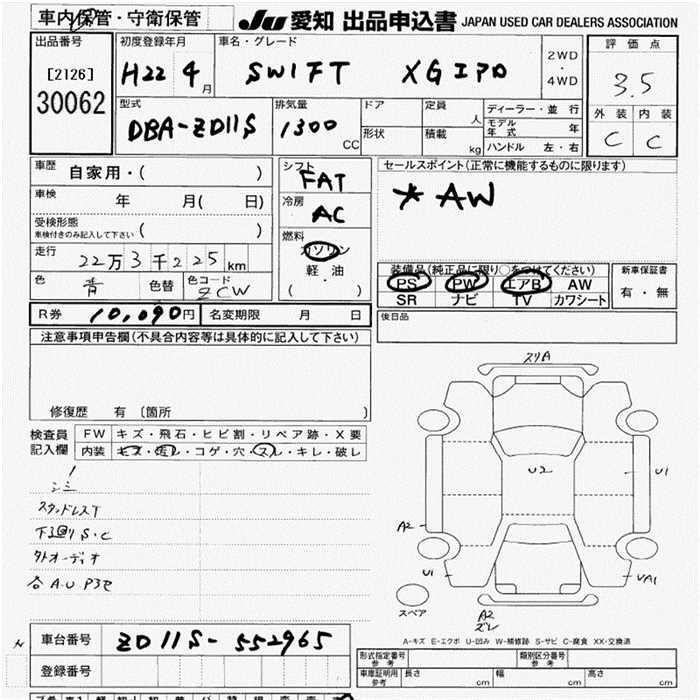 車内保管・守衛保管
JU 愛知 出品申込書 JAPAN USED CAR DEALERS ASSOCIATION
出品番号
[2126]
30062
初度登録年月
H22 4月
車名・グレード
SWIFT XG
2WD
・
4WD
評価点
3.5
外装 内装
C C
型式
DBA-ZD11S
排気量
1300 CC
ドア
形状
定員
人
積載
kg
ディーラー・並行
モデル年式 年
ハンドル 左・右
車歴 自家用・( )
車検 年 月( 日)
受検形態
車検付きのみ記入して下さい ( )
走行
22万3千225km
色 青 色替 色コード ZCW
シフト
FAT
冷房
AC
燃料
ガソリン
軽・油
・
( )
セールスポイント(正常に機能するものに限ります)
* AW
装備品(純正品に限り○をつけてください)
PS PW エアB AW
SR ナビ TV カワシート
新車保証書
有・無
後日品
R券 10,090円 名変期限 月 日
注意事項申告欄(不具合内容等は具体的に記入して下さい)
修復歴 有 〔箇所 〕
検査員記入欄
FW キズ・飛石・ヒビ割・リペア跡・X要
内装 キズ・汚レ・コゲ・穴・スレ・キレ・破レ
シミ
スタッドレスT
下廻りS・C
外オーディオ
スリA
U2
U1
A2
U1
VA1
A2
ズレ
スペア
A-キズ E-エクボ U-凹み W-補修跡 S-サビ C-腐食 XX-交換済
車台番号 ZD11S-552965
登録番号
形式指定番号 参考
類別区分番号 参考
車庫証明用 参考 長さ cm 幅 cm 高さ cm